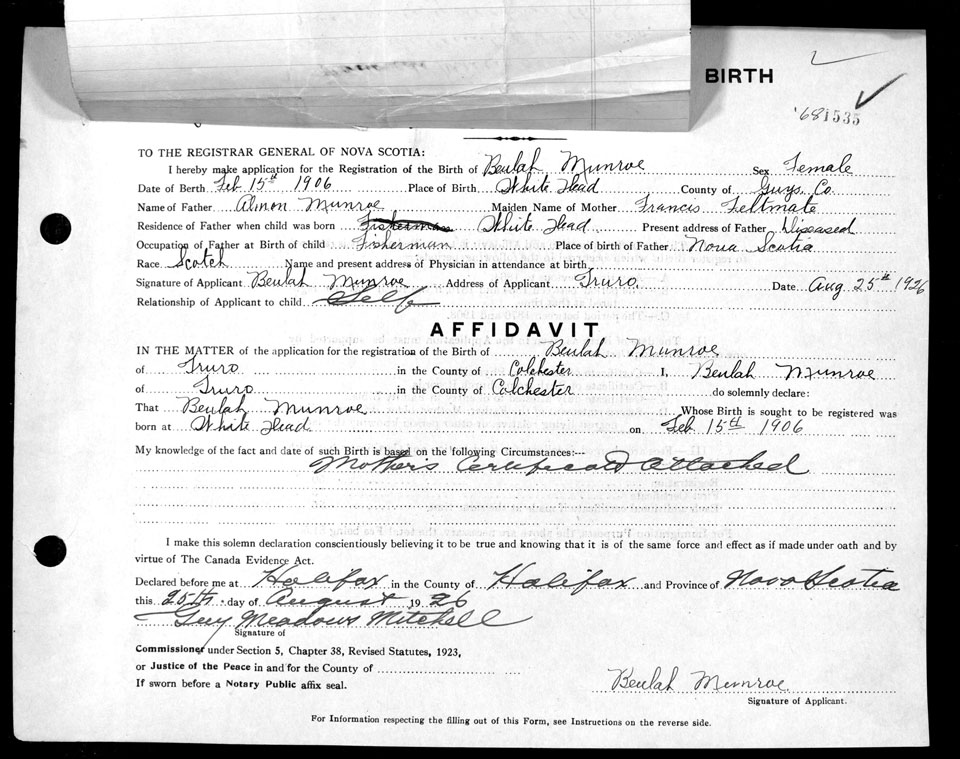 BIRTH
'681535
TO THE REGISTRAR GENERAL OF NOVA SCOTIA:
I hereby make application for the Registration of the Birth of Beulah Munroe Sex Female
Date of Birth Feb 15th 1906 Place of Birth White Head County of Guys. Co.
Name of Father Almon Munroe Maiden Name of Mother Francis Feltmate
Residence of Father when child was born Fisherman White Head Present address of Father Diseased
Occupation of Father at Birth of child Fisherman Place of birth of Father Nova Scotia
Race Scotch Name and present address of Physician in attendance at birth
Signature of Applicant Beulah Munroe Address of Applicant Truro. Date Aug 25th 1926
Relationship of Applicant to child Self
AFFIDAVIT
IN THE MATTER of the application for the registration of the Birth of Beulah Munroe
of Truro in the County of Colchester I, Beulah Munroe
of Truro in the County of Colchester do solemnly declare:
That Beulah Munroe Whose Birth is sought to be registered was
born at White Head on Feb 15th 1906
My knowledge of the fact and date of such Birth is based on the following Circumstances:—
Mother's Certificate Attached
I make this solemn declaration conscientiously believing it to be true and knowing that it is of the same force and effect as if made under oath and by
virtue of The Canada Evidence Act.
Declared before me at Halifax in the County of Halifax and Province of Nova Scotia
this 25th day of August 1926
Guy Meadows Mitchell
Signature of
Commissioner under Section 5, Chapter 38, Revised Statutes, 1923,
or Justice of the Peace in and for the County of
If sworn before a Notary Public affix seal.
Beulah Munroe
Signature of Applicant.
For Information respecting the filling out of this Form, see Instructions on the reverse side.